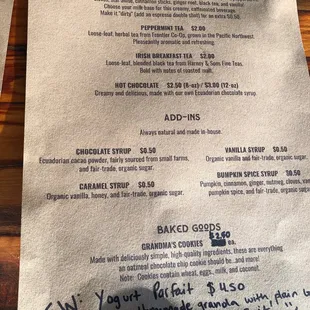 Choose your milk base for this creamy, caffeinated beverage.
Make it "dirty" (add an espresso double shot) for an extra $0.50.
PEPPERMINT TEA $2.00
Loose-leaf, herbal tea from Frontier Co-Op, grown in the Pacific Northwest.
Pleasantly aromatic and refreshing.
IRISH BREAKFAST TEA $2.00
Loose-leaf, blended black tea from Harney & Sons Fine Teas.
Bold with notes of roasted malt.
HOT CHOCOLATE $2.50 (8-oz) / $3.00 (12-oz)
Creamy and delicious, made with our own Ecuadorian chocolate syrup.
ADD-INS
Always natural and made in-house.
CHOCOLATE SYRUP $0.50
Ecuadorian cacao powder, fairly sourced from small farms,
and fair-trade, organic sugar.
VANILLA SYRUP $0.50
Organic vanilla and fair-trade, organic sugar.
CARAMEL SYRUP $0.50
Organic vanilla, honey, and fair-trade, organic sugar.
BUMPKIN SPICE SYRUP $0.50
Pumpkin, cinnamon, ginger, nutmeg, cloves,
pumpkin spice, and fair-trade, organic sugar.
BAKED GOODS
$2.50
GRANDMA'S COOKIES ea.
Made with deliciously simple, high-quality ingredients, these are everything
an oatmeal chocolate chip cookie should be...and more!
Note: Cookies contain wheat, eggs, milk, and coconut.
Yogurt Parfait $4.50
granola with plain